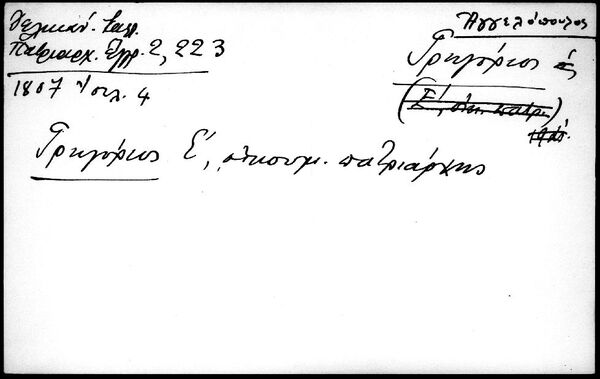 Δελικάν. Καλλ.
Πατριαρχ. Έγγρ. 2, 223
1807 Ιουλ. 4
Ἀγγελόπουλος
Γρηγόριος
(Ε΄, οἰκ. πατρ.)
Γρηγόριος Ε΄, οἰκουμ. πατριάρχης